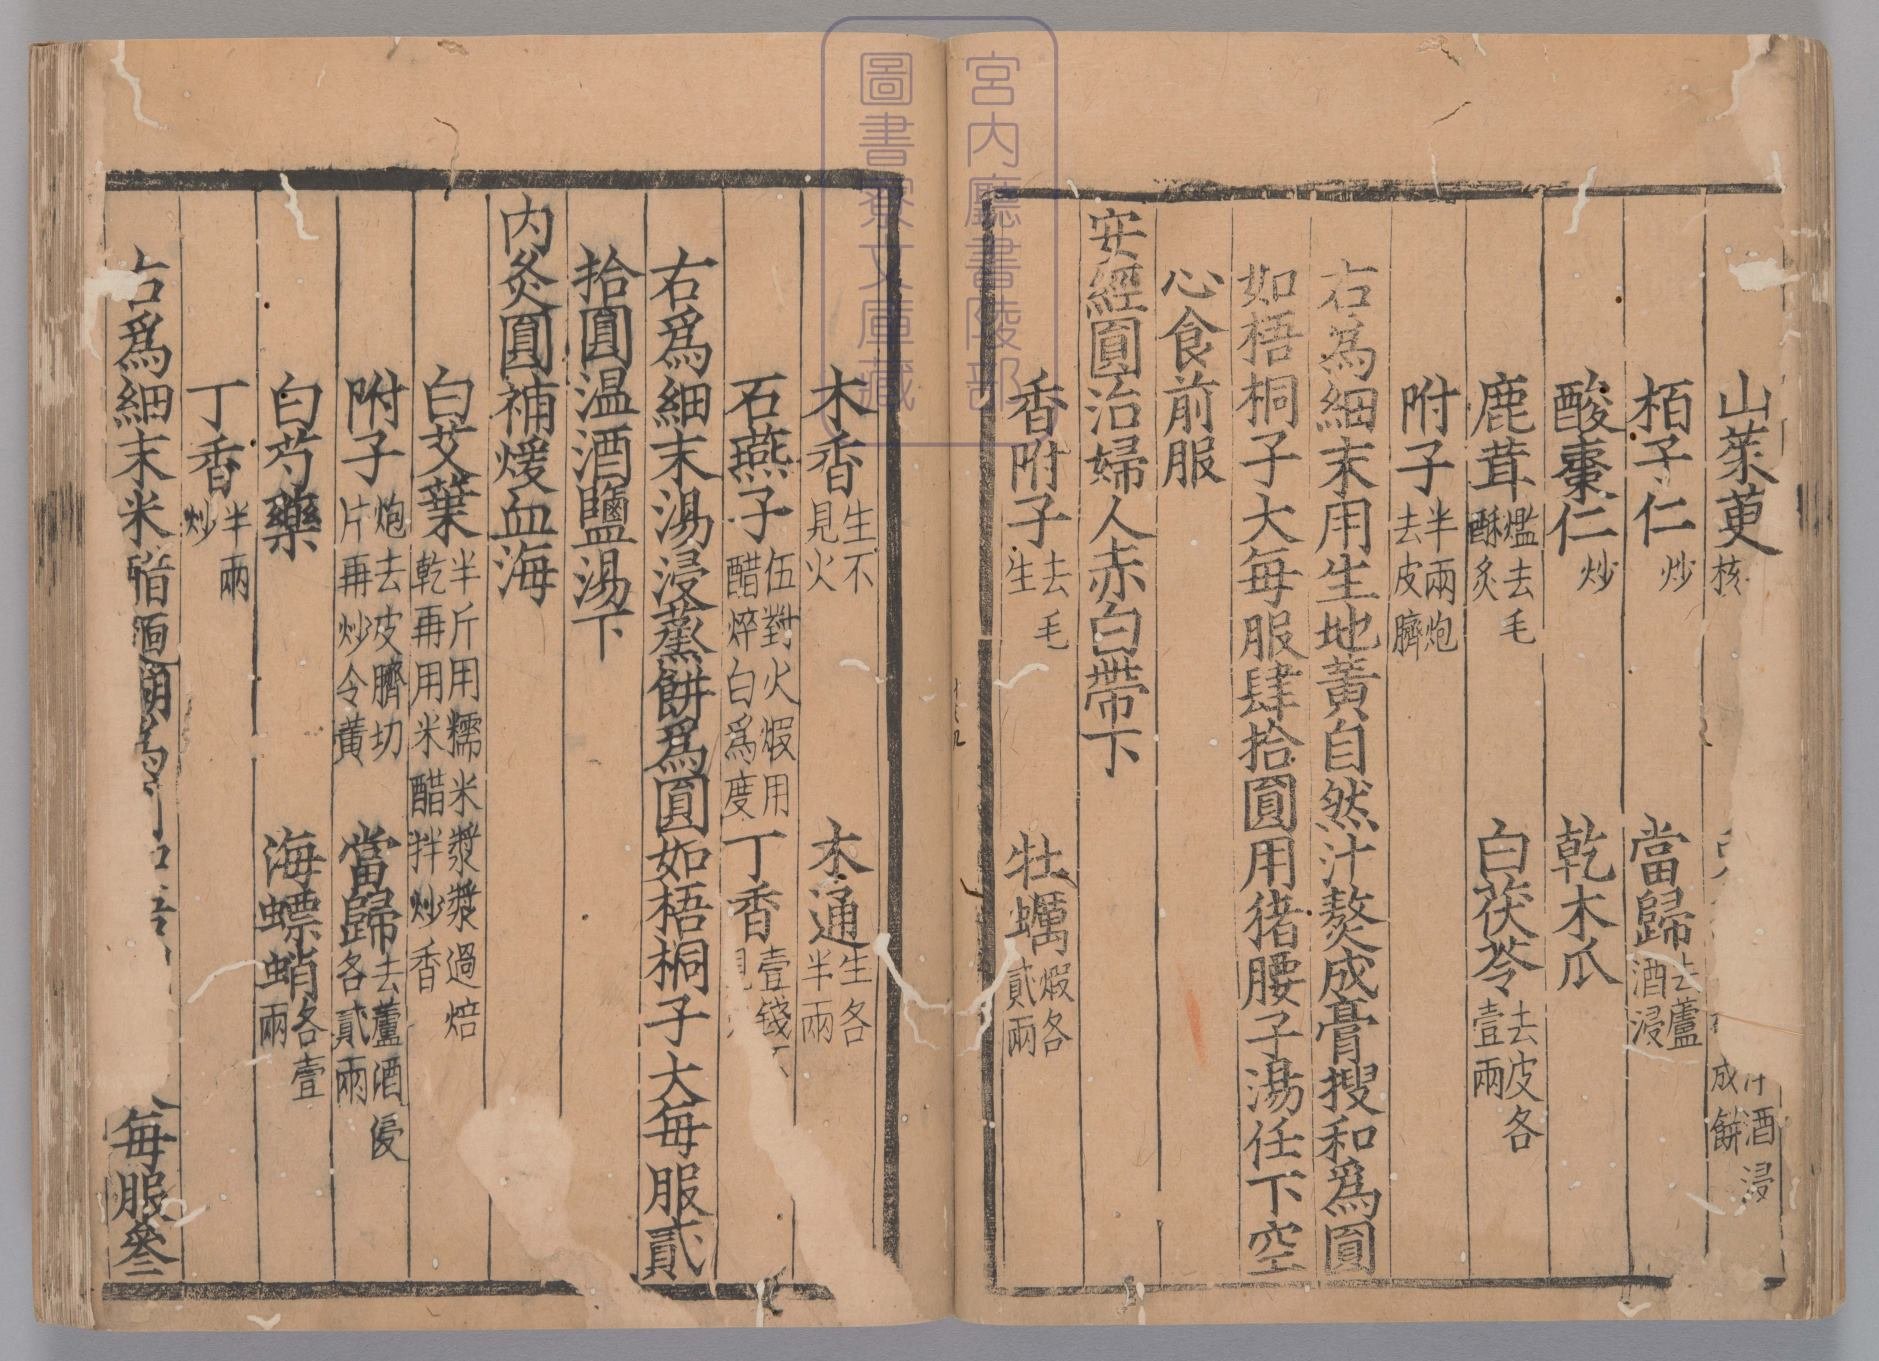 山茱萸核 汁酒浸成餅
栢子仁炒 當歸去蘆酒浸
酸棗仁炒 乾木瓜
鹿茸爁去毛酥炙 白茯苓去皮各壹兩
附子半兩炮去皮臍
右為細末用生地黃自然汁熬成膏搜和爲圓
如梧桐子大每服肆拾圓用猪腰子湯任下空
心食前服
安經圓治婦人赤白帶下
香附子去毛生 牡蠣煆各貳兩
木香生不見火 木通生各半兩
石燕子伍對火煆用醋焠白爲度 丁香壹錢
右爲細末湯浸蒸餅爲圓如梧桐子大每服貳
拾圓温酒鹽湯下
内灸圓補煖血海
白艾葉半斤用糯米漿漿過焙乾再用米醋拌炒香
附子炮去皮臍切片再炒令黃 當歸去蘆酒浸各貳兩
白芍藥 海螵蛸各壹兩
丁香半兩炒
右爲細末米醋麵糊爲 每服叄
宮内廳書陵部
圖書寮文庫藏